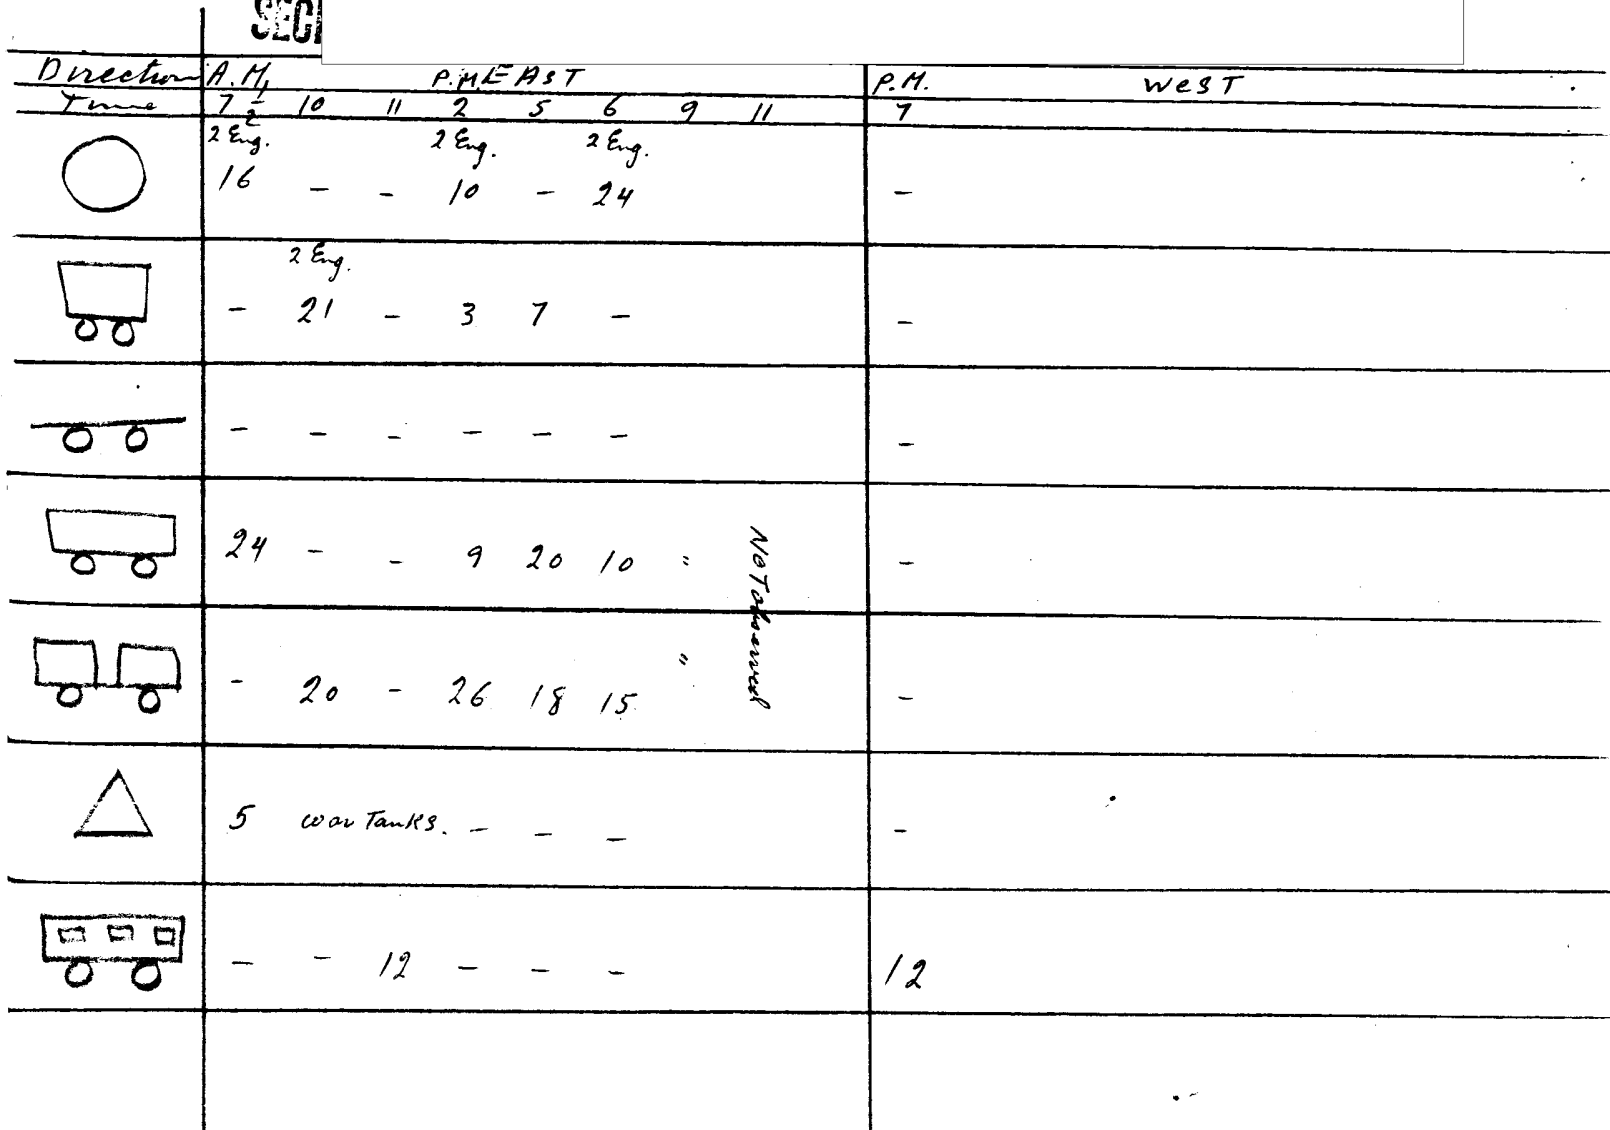 SECR
Direction A.M. P.M. EAST P.M. WEST
Time 7 1/2 10 11 2 5 6 9 11 7
2 Eng. 2 Eng. 2 Eng.
16 - - 10 - 24 -
2 Eng.
- 21 - 3 7 - -
- - - - - - -
24 - - 9 20 10 " -
Not observed
- 20 - 26 18 15 " -
5 war Tanks. - - - -
- - 12 - - - 12